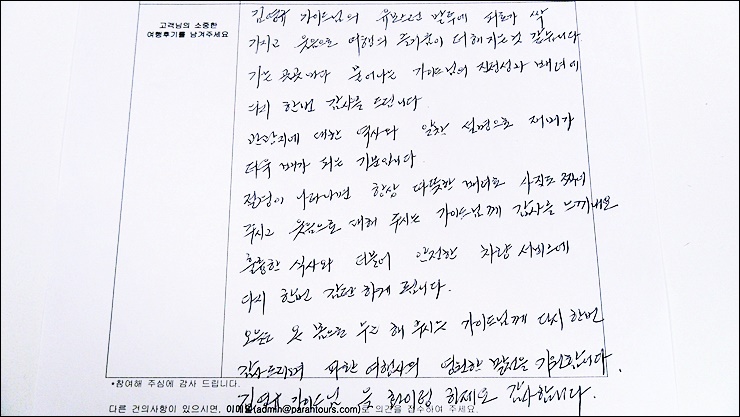 고객님의 소중한
여행후기를 남겨주세요
김영규 가이드님의 유모스런 말투에 피로가 싹
가시고 웃음으로 여행의 즐거움이 더해지는것 같습니다
가는 곳곳마다 묻어나는 가이드님의 친절성과 배려에
다시 한번 감사를 드립니다.
관광지에 대한 역사와 알찬 설명으로 재미가
더욱 배가 되는 기분입니다
절경이 나타나면 항상 따뜻한 배려로 사진도 찍어
주시고 웃음으로 대해 주시는 가이드님께 감사를 느끼네요
훌륭한 식사와 더불어 안전한 차량 서비스에
다시 한번 감탄하게 됩니다.
오늘도 온 몸으로 수고해 주시는 가이드님께 다시 한번
감사드리며 파란여행사의 영원한 발전을 기원합니다.
*참여해 주심에 감사 드립니다.
김영규 가이드님 감사합니다.
다른 건의사항이 있으시면, 이메일(admin@parantours.com)로 의견을 접수하여 주세요.